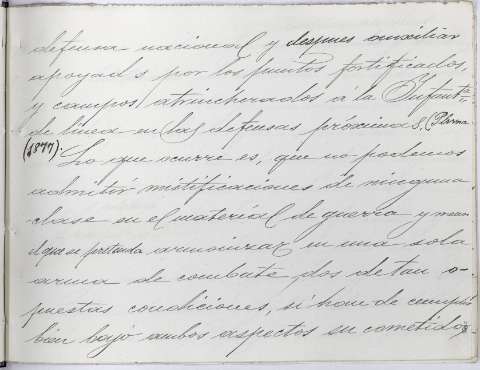 defensa nacional y despues auxiliar
apoyad s por los puntos fortificados,
y campos atrincherados á la Infantª
de linea en las defensas próximas. (Plewna
(1877).
Lo que ocurre es, que no podemos
admitir mistificaciones de ninguna
clase en el material de guerra y
el que se pretenda armonizar en una sola
arma de combate, dos de tan o-
puestas condiciones, si han de cumplir
bien bajo ambos aspectos su cometido,